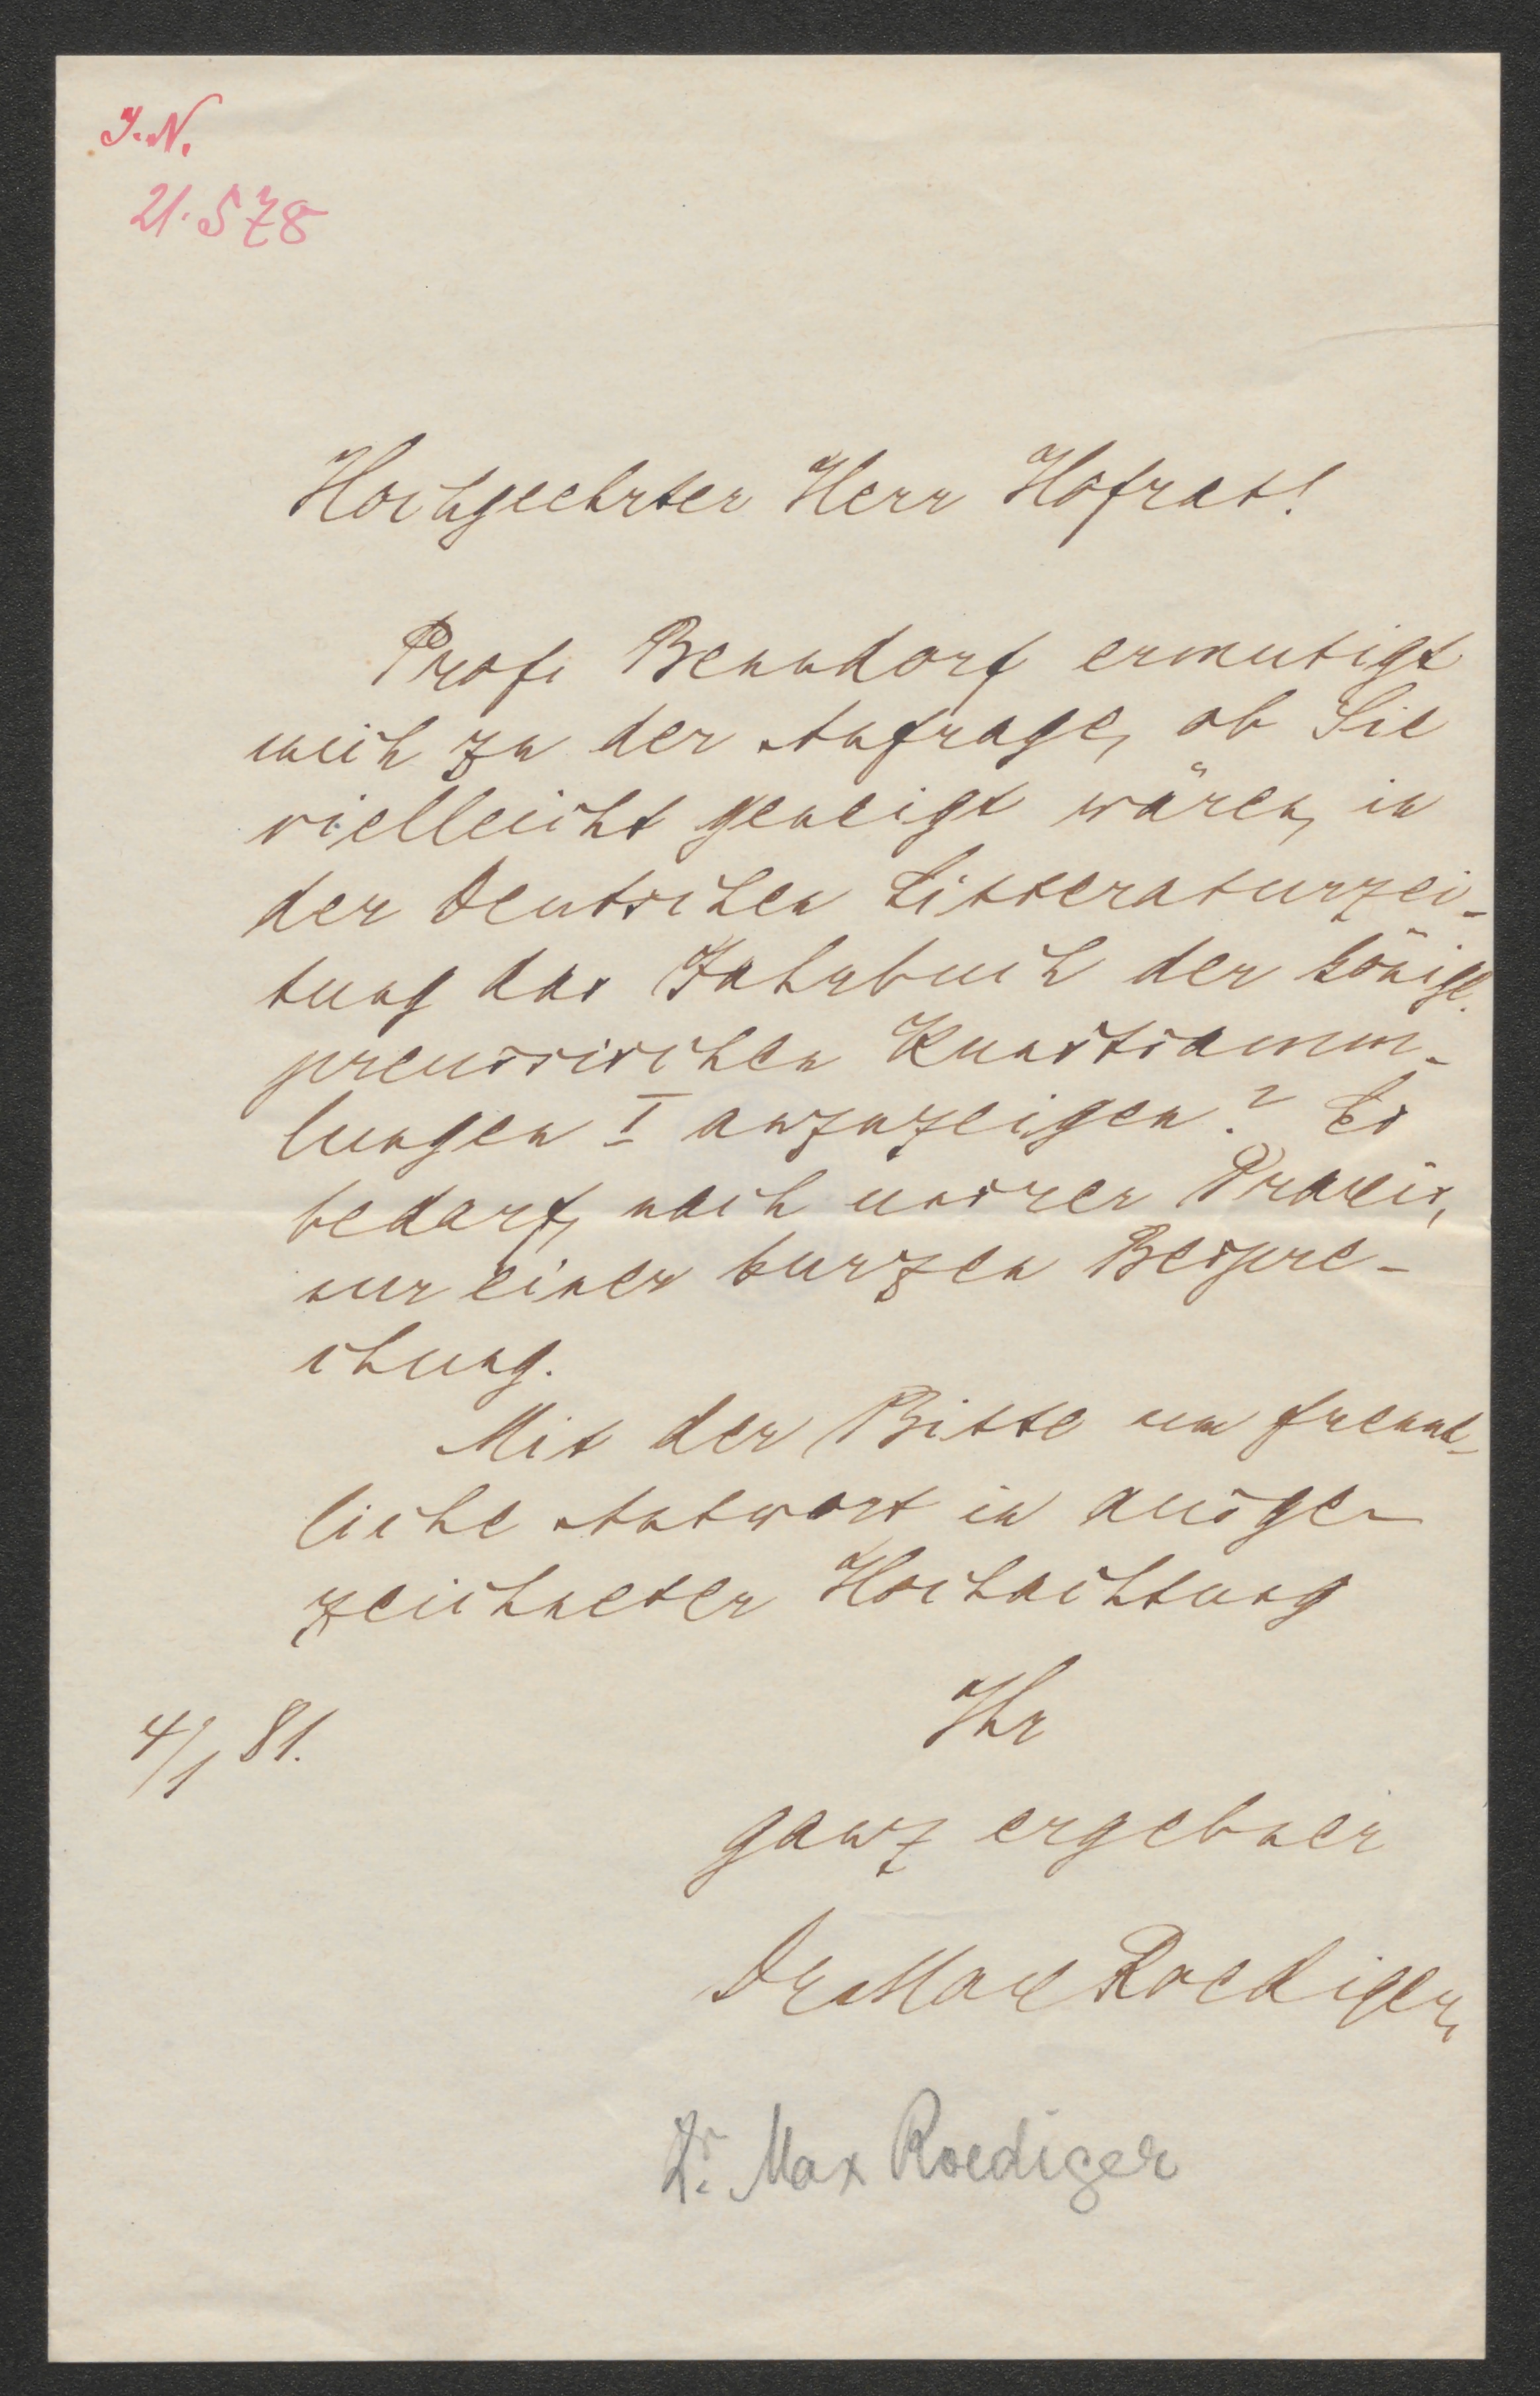 J. N.
21.578
Hochgeehrter Herr Hofrat!
Prof. Benndorf ermutigt
mich zu der Anfrage, ob Sie
vielleicht geneigt wären, in
der Deutschen Litteraturzei-
tung das Jahrbuch der königl.
preussischen Kunstsamm-
lungen I anzuzeigen? Es
bedarf, nach unsrer Praxis,
nur einer kurzen Bespre-
chung.
Mit der Bitte um freund-
liche Antwort in ausge-
zeichneter Hochachtung
Ihr
4/1 81.
ganz ergebner
Dr Max Roediger.
Dr. Max Roediger